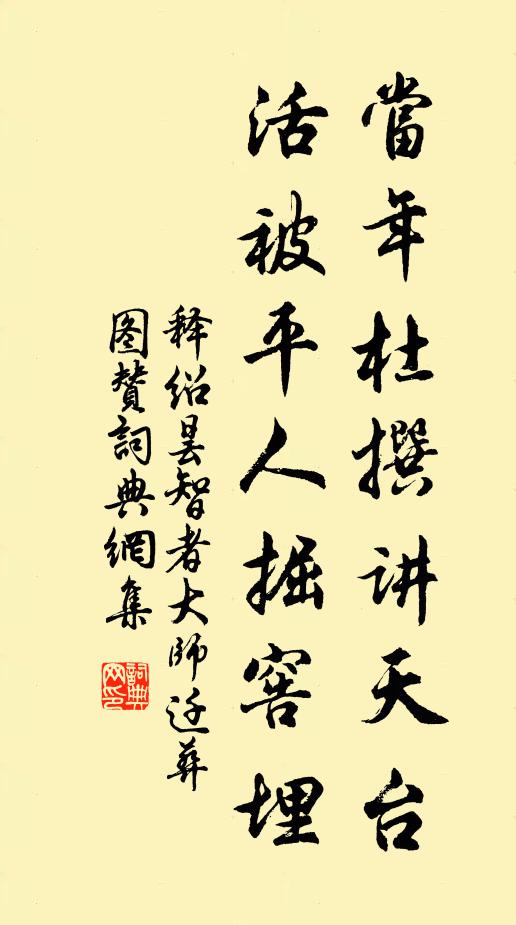 當年杜撰讲天台
活被平人掘窖埋
释绍昙智者大師迁葬
图赞詞典網集
詞典网印